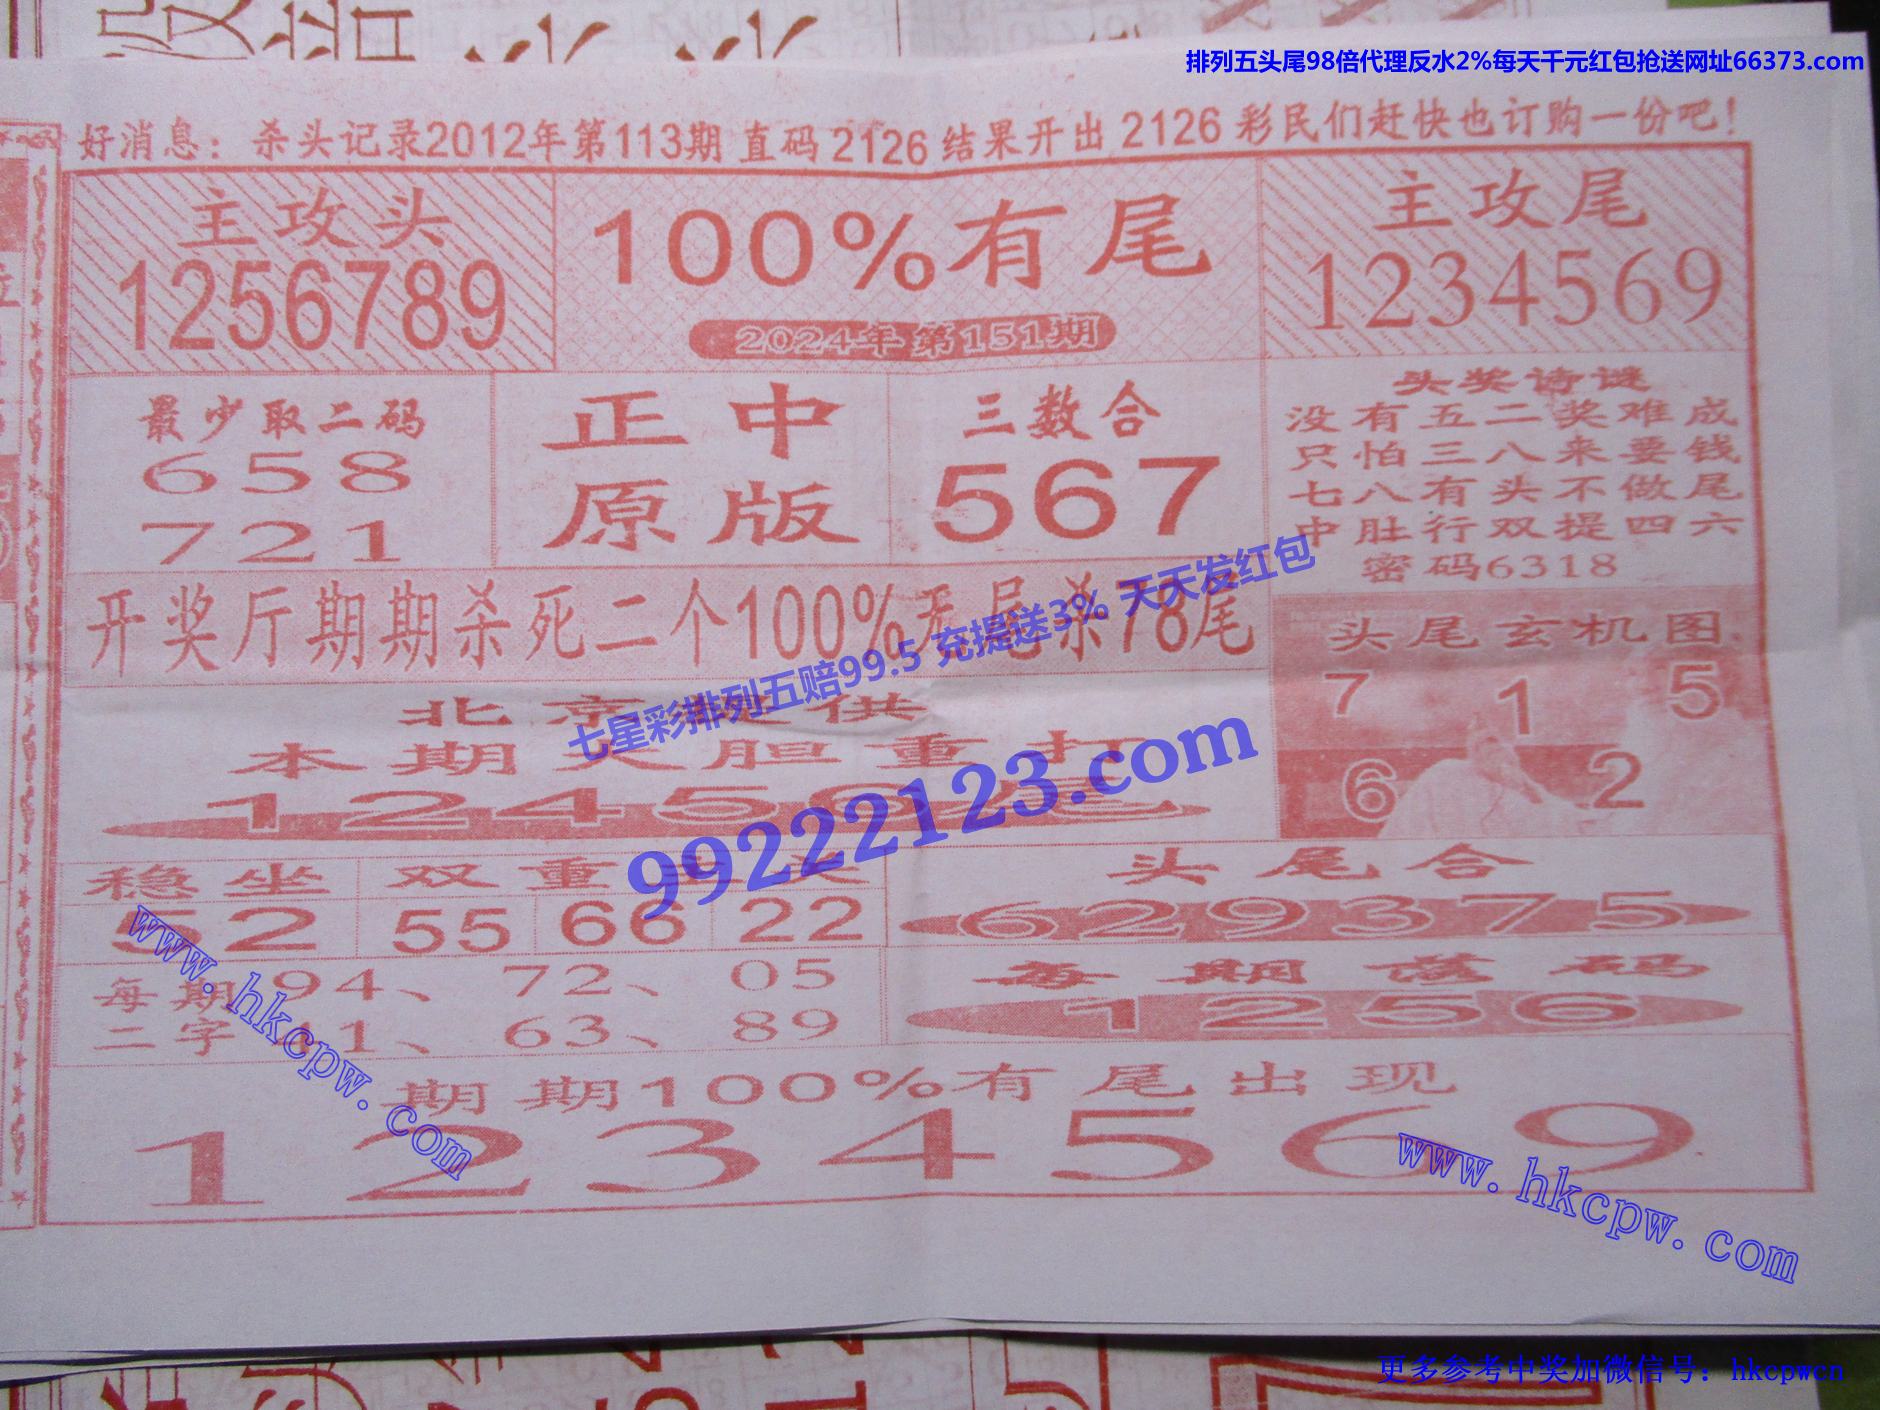 排列五头尾98倍代理反水2%每天千元红包抢送网址66373.com
好消息：杀头记录2012年第113期 直码 2126 结果开出 2126 彩民们赶快也订购一份吧！
主攻头
1256789
100%有尾
2024年第151期
主攻尾
1234569
最少取二码
658
721
正中
原版
三数合
567
头奖诗谜
没有五二奖难成
只怕三八来要钱
七八有头不做尾
中肚行双提四六
密码6318
开奖厅期期杀死二个100%无尾杀78尾
七星彩排列五赔99.5 充提送3% 天天发红包
99222123.com
头尾玄机图
7 1 5
6 2
北京提供
本期大胆重打
稳坐
52
双重
55 66 22
头尾合
629375
每期
二字
94、 72、 05
1、 63、 89
每期落码
1256
期期100%有尾出现
1234569
www.hkcpw.com
www.hkcpw.com
更多参考中奖加微信号：hkcpwcn